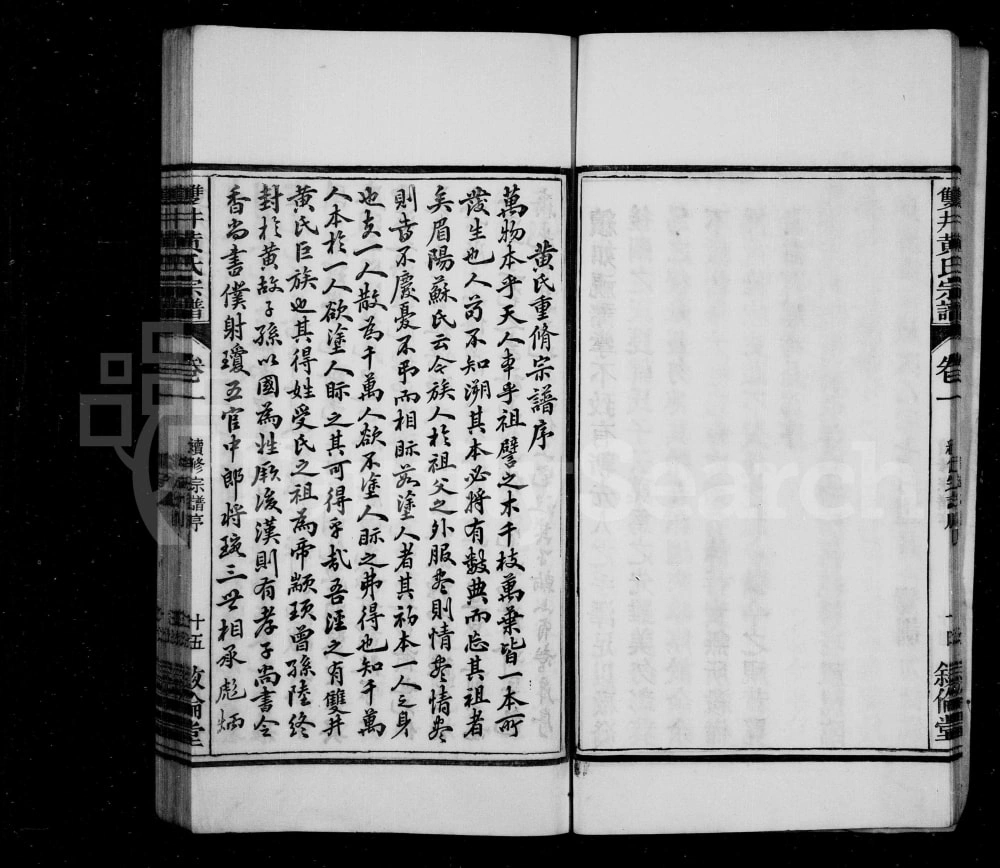 雙井黃氏宗譜
卷一
敘倫堂
黃氏重脩宗譜序
萬物本乎天人本乎祖譬之木千枝萬葉皆一本所
發生也人苟不知溯其本必將有數典而忘其祖者
矣眉陽蘇氏云今族人於祖父之外服盡則情盡情盡
則喜不慶憂不弔而相眎若塗人者其初本一人之身
也夫一人散為千萬人欲不塗人眎之弗得也知千萬
人本於一人欲塗人眎之其可得乎哉吾涇之有雙井
黃氏巨族也其得姓受氏之祖為帝顓頊曾孫陸終
封於黃故子孫以國為姓厥後漢則有孝子尚書令
香尚書僕射瓊五官中郎將琬三世相承彪炳
雙井黃氏宗譜
卷一
續修宗譜序
十五
敘倫堂